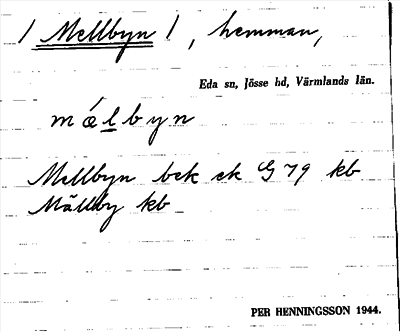 / Mellbyn /, hemman,
Eda sn, Jösse hd, Värmlands län.
mǽlbyn
Mellbyn bek ek G 79 kb
Mällby kb
PER HENNINGSSON 1944.